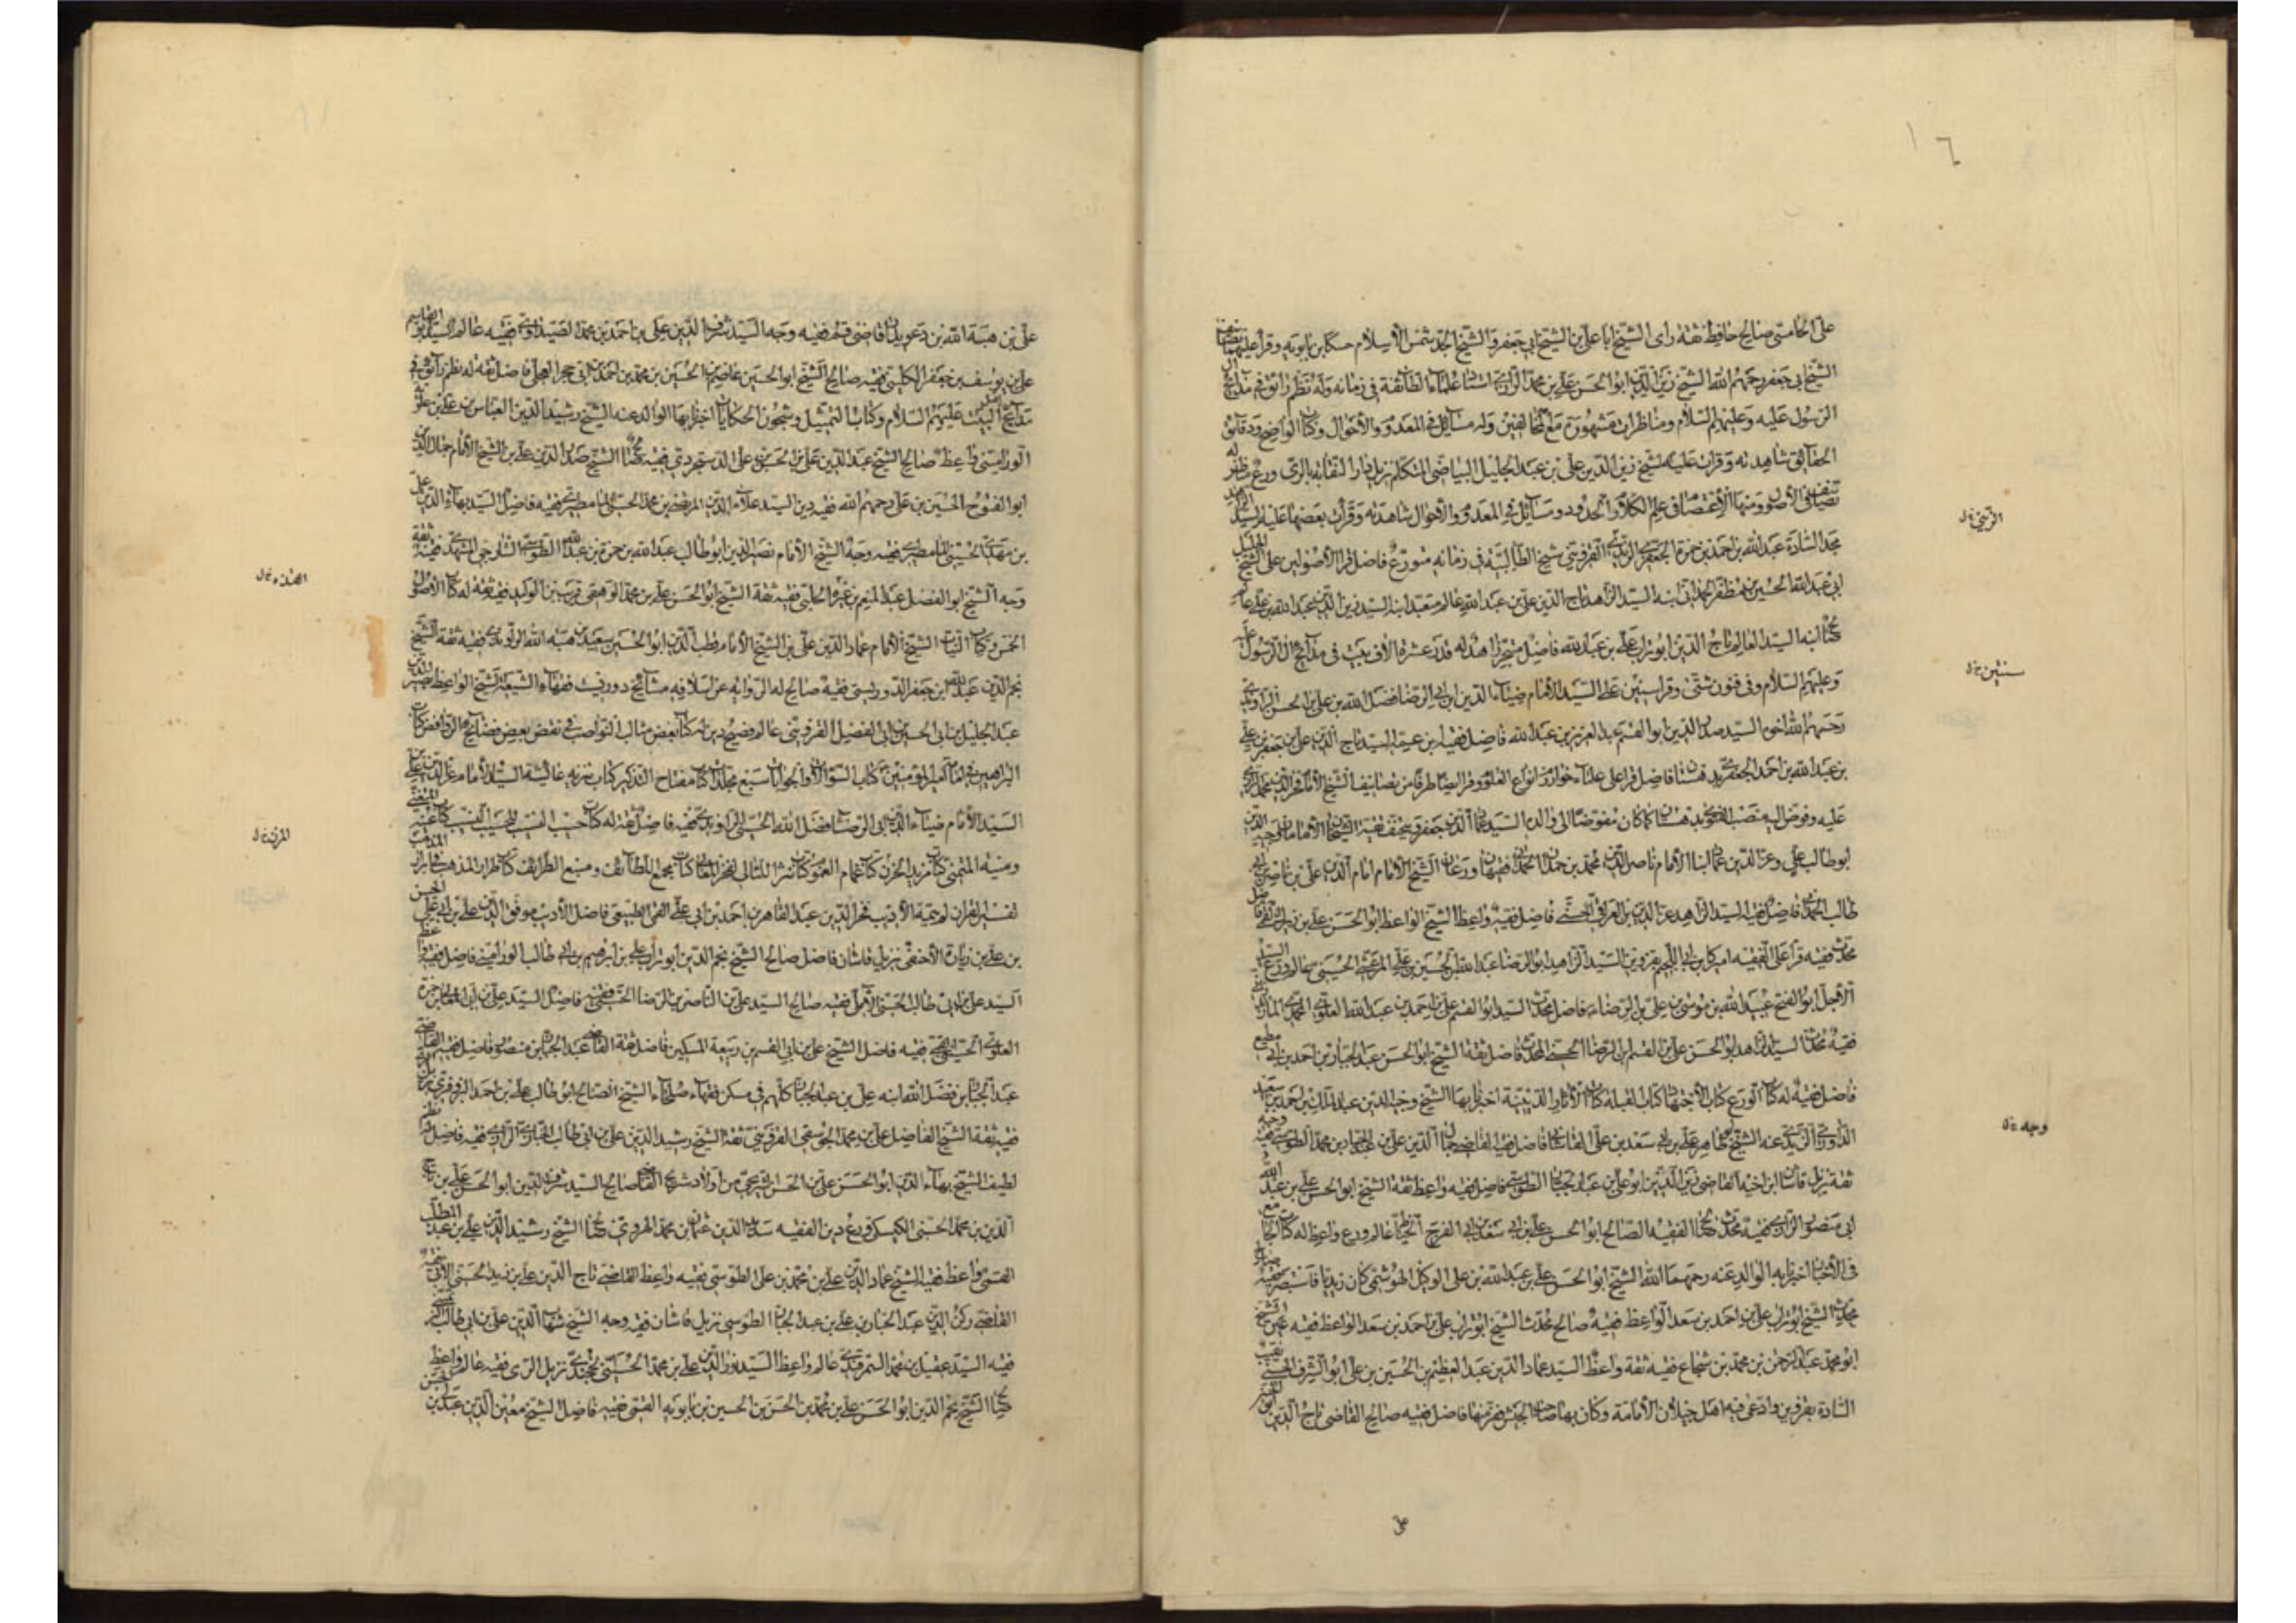 ١٦
على الجاستي صالح حافظ ثقة راى الشيخ ابا علي بن الشيخ ابي جعفر و الشيخ الجد شمس الاسلام حسكا بن بابويه وقرا عليهما تصانيف
الشيخ ابي جعفر رحمهم الله الشيخ زين الدين ابو الحسن علي بن محمد الرازي استاد علماء الطائفة في زمانه وله نظم رائق في مدايح ال
الرسول عليه وعليهم السلام ومناظرات مشهورة مع المخالفين وله مسائل في المعدوم والاحوال وكتاب الواضح ودقائق
الحقائق شاهدته وقرات عليه الشيخ زين الدين علي بن عبد الجليل البياضي المتكلم نزيل دار النقابة بالري ورع مناظر له
تصانيف في الاصول منها الاعتصام في علم الكلام والحدود ومسائل في المعدوم والاحوال شاهدته وقرات بعضها عليه السيد الزاهد
مجد السادة عبد الله بن احمد بن حمزة الجعفري الزينبي القزويني شيخ الطالبية في زمانه متورع فاضل قرا الاصولين على الشيخ الجليل
ابي عبد الله الحسين بن مظفر الحمداني ابنه السيد الزاهد تاج الدين علي بن عبد الله عالم متعبد ابنه السيد زين الدين عبد الله بن علي عالم
محدث ابنه السيد العالم تاج الدين ابو تراب علي بن عبد الله فاضل متبحر زاهد له قدر عشرة الاف بيت في مدايح ال الرسول عليه
وعليهم السلام وفي فنون شتى وقرا سنين على السيد الامام ضياء الدين ابي الرضا فضل الله بن علي بن الحسن الراوندي
رحمهم الله اخوه السيد صدر الدين ابو القسم عبد العزيز بن عبد الله فاضل فقيه ابن عمه السيد تاج الدين علي بن جعفر بن علي
بن عبد الله بن احمد الجعفري بدهستان فاضل قرا على علماء خوارزم انواع العلوم وقرا ايضا طرفا من تصانيف الشيخ الامام فخر الدين محمد الرازي
عليه وفوض اليه منصب الفتوى بدهستان كما كان مفوضا الى والده السيد عماد الدين جعفر وجيه الدين
ابو طالب علي وعز الدين عثمان ابنا الامام ناصر الدين محمد بن حمدان الحمداني فقيهان ورعان الشيخ الامام امام الدين علي بن ناصر بن ابي
طالب الحمداني فاضل فقيه السيد الزاهد عز الدين بن العراقي الحسني فاضل فقيه واعظ الشيخ الواعظ ابو الحسن علي بن زيرك القمي فاضل
محدث فقيه قرا على الفقيه اميركا بن ابي اللجيم بقزوين السيد الزاهد ابو الرضا عبد الله بن الحسين بن علي المرعشي الحسيني صالح ورع السيد
الاجل ابو الفتح عبيد الله بن موسى بن علي بن الرضاء فاضل محدث السيد ابو القسم علي بن احمد بن عبد الله العلوي المحمدي المازندراني
فقيه محدث السيد الزاهد ابو الحسن علي بن القسم بن الرضا الحسيني المحدث فاضل ثقة الشيخ ابو الحسن عبد الجبار بن احمد بن ابي مطيع
فاضل فقيه له كتاب الورع كتاب الاجتهاد كتاب القبلة كتاب الاثار الدينية اخبرنا بها الشيخ وجيه الدين عبد الملك بن احمد بن سعيد
الداودي الزيدي عنه الشيخ طاهر علي بن ابي سعد بن علي القاشاني فاضل فقيه القاضي جمال الدين علي بن عبد الجبار بن محمد الطوسي فقيه وجه
ثقة نزيل قاشان ابن اخيه القاضي زين الدين ابو علي بن عبد الجبار الطوسي فاضل فقيه واعظ ثقة الشيخ ابو الحسن علي بن عبد الله
ابي منصور الرازي فقيه محدث الفقيه الصالح ابو الحسن علي بن ابي سعد بن ابي الفرج الخياط عالم ورع واعظ له كتاب الجامع
في الاخبار اخبرنا به الوالد عنه رحمهما الله الشيخ ابو الحسن علي بن عبد الله بن علي الوكيل الهوشمي كان زيديا فاستبصر فقيه صالح
محدث الشيخ ابو تراب علي بن احمد بن سعد الواعظ فقيه صالح محدث الشيخ ابو تراب علي بن احمد بن سعد الواعظ فقيه الشيخ
ابو محمد عبد الرحمن بن محمد بن شجاع فقيه ثقة واعظ السيد عماد الدين عبد العظيم بن الحسين بن علي ابو الشرف الحسني نقيب
السادة بقزوين وادعى فيه اهل جيلان الامامة وكان بها صاحب الجيش فر منها فاضل فقيه صالح القاضي تاج الدين
على
الزينبي خ ل
سنتين خ ل
وجه خ ل
علي بن هبة الله بن دعويدار قاضي قم فقيه وجه السيد شرف الدين علي بن احمد بن محمد الصيداوي فقيه عالم السيد ابو القاسم
علي بن يوسف بن جعفر الكليني فقيه صالح الشيخ ابو الحسين عاصم بن الحسين بن محمد بن احمد بن ابي حجر العجلي فاضل ثقة له نظم رائق في
مدايح اهل البيت عليهم السلام وكتاب التمثيل وشجون الحكايات اخبرنا بها الوالد عنه الشيخ رشيد الدين العباس بن علي بن علوي
الوراميني واعظ صالح الشيخ عبد الدين علي بن الحسن بن علي الدستجردي فقيه محدث الشيخ صدر الدين علي بن الشيخ الامام جمال الدين
ابو الفتوح الحسين بن علي رحمهم الله فقيه دين السيد علاء الدين المرتضى بن محمد الحسني المامطيري فقيه فاضل السيد بهاء الدين علي
بن مهدي الحسيني المامطيري فقيه وجه الشيخ الامام نصير الدين ابو طالب عبد الله بن حمزة بن عبد الله الطوسي الشارحي المشهدي فقيه ثقة
وجه الشيخ ابو الفضل عبد المنعم بن غيرة الحلبي فقيه ثقة الشيخ ابو الحسن علي بن محمد الوهقي قريب بن الوليد فقيه ثقة له كتاب الاصول
الخمس وكتاب النيات الشيخ الامام عماد الدين علي بن الشيخ الامام قطب الدين ابو الحسين سعيد بن هبة الله الراوندي فقيه ثقة الشيخ
نجم الدين عبد الله بن جعفر الدوريستي فقيه صالح له الرواية عن اسلافه مشائخ دوريست فقهاء الشيعة الشيخ الواعظ نصير الدين
عبد الجليل بن ابي الحسين بن ابي الفضيل القزويني عالم فصيح دين له كتاب بعض مثالب النواصب في نقض بعض فضائح الروافض كتاب
البراهين في امامة امير المؤمنين كتاب السؤالات والجوابات سبع مجلدات كتاب مفتاح التذكير كتاب تنزيه عائشة السيد الامام عز الدين علي بن
السيد الامام ضياء الدين ابي الرضا فضل الله الحسني الراوندي فقيه فاضل ثقة له كتاب حسب النسب للحسيب النسيب كتاب غنية المتغني
ومنية المتمني كتاب مزيد الحزن كتاب غمام الغموم كتاب نثر اللئالي لفخر المعالي كتاب مجمع اللطائف ومنبع الطرائف كتاب طراز المذهب في ابراز المذهب
تفسير القران لم يتمه الاديب فخر الدين عبد القاهر بن احمد بن ابي علي القمي الطبيعي فاضل الاديب موفق الدين علي بن ابي علي الحسن
بن علي بن زيارة الاحنفي نزيل قاشان فاضل صالح الشيخ نجم الدين ابو تراب علي بن ابرهيم بن ابي طالب الوراميني فاضل فقيه واعظ
السيد علي بن ابي طالب الحسني الآملي فقيه صالح السيد علي بن الناصر بن الرضا الحسيني فقيه فاضل السيد علي بن ابي المعالي بن حمزة
العلوي الحسيني فقيه فاضل الشيخ علي بن ابي القسم بن ربيعة المسكيني فاضل ثقة القاضي عبد الجبار بن منصور فاضل فقيه القاضي
عبد الجبار بن فضل الله ابنه علي بن عبد الجبار كلهم في مسكن فقهاء صلحاء الشيخ الصالح ابو طالب علي بن احمد البزوفري نزيل الري
فقيه ثقة الشيخ الفاضل علي بن محمد الجوسقي القزويني ثقة الشيخ رشيد الدين علي بن ابي طالب الخبازي الرازي فقيه فاضل مناظر
لطيف الشيخ بهاء الدين ابو الحسن علي بن الحسن الشريحي من اولاد شريح القاضي صالح السيد شرف الدين ابو الحسن علي بن تاج
الدين بن محمد الحسني الكيسكي ورع دين الفقيه سديد الدين عثمان بن محمد الهروي الشيخ رشيد الدين علي بن عبد المطلب
القمي واعظ فقيه الشيخ عماد الدين علي بن محمد بن علي الطوسي فقيه واعظ القاضي تاج الدين علي بن زيد الحسني الآبي فقيه
القاضي ركن الدين عبد الجبار بن علي بن عبد الجبار الطوسي نزيل قاشان فقيه وجه الشيخ شهاب الدين علي بن ابي طالب
فقيه السيد عقيل بن محمد السمرقندي عالم واعظ السيد نور الدين علي بن محمد الحسيني الخجندي نزيل الري فقيه عالم واعظ
الشيخ نجم الدين ابو الحسن علي بن محمد بن الحسن بن الحسين بن بابويه القمي فقيه فاضل الشيخ معين الدين عبد
المزن خ ل